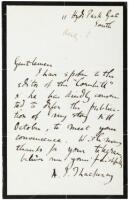 11 Hyde Park Gate
South
Aug.
Gentlemen
I have spoken to the
editor of the Cornhill
& he has kindly consented
to defer the publica-
tion of my story till
October, to meet your
convenience. With
thanks for your telegram
believe me yours faithfully
A. I. Thackeray